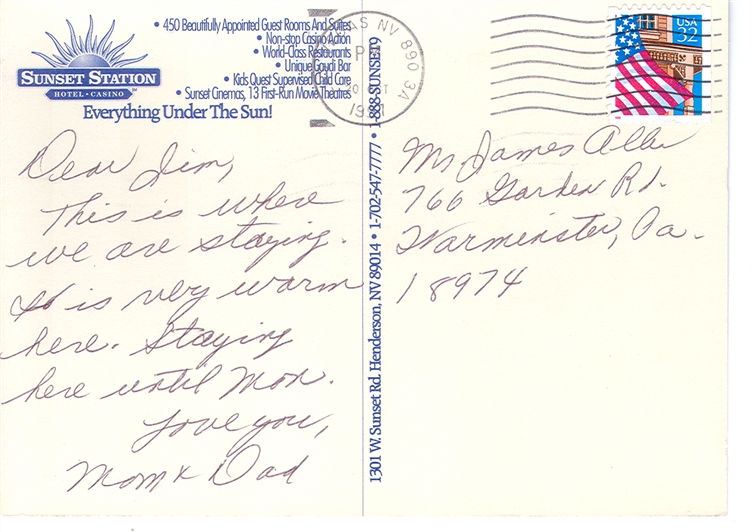 SUNSET STATION
HOTEL • CASINO™
• 450 Beautifully Appointed Guest Rooms And Suites
• Non-stop Casino Action
• World-Class Restaurants
• Unique Gaudi Bar
• Kids Quest Supervised Child Care
• Sunset Cinemas, 13 First-Run Movie Theatres
Everything Under The Sun!
NV 890 3A
PM
USA
32
Dear Jim,
This is where
we are staying.
It is very warm
here. Staying
here until Mon.
Love you,
Mom & Dad
1301 W. Sunset Rd. Henderson, NV 89014 • 1-702-547-7777 • 1-888-SUNSET-9
Mr James Allen
766 Garden Rd.
Warminster, Pa.
18974